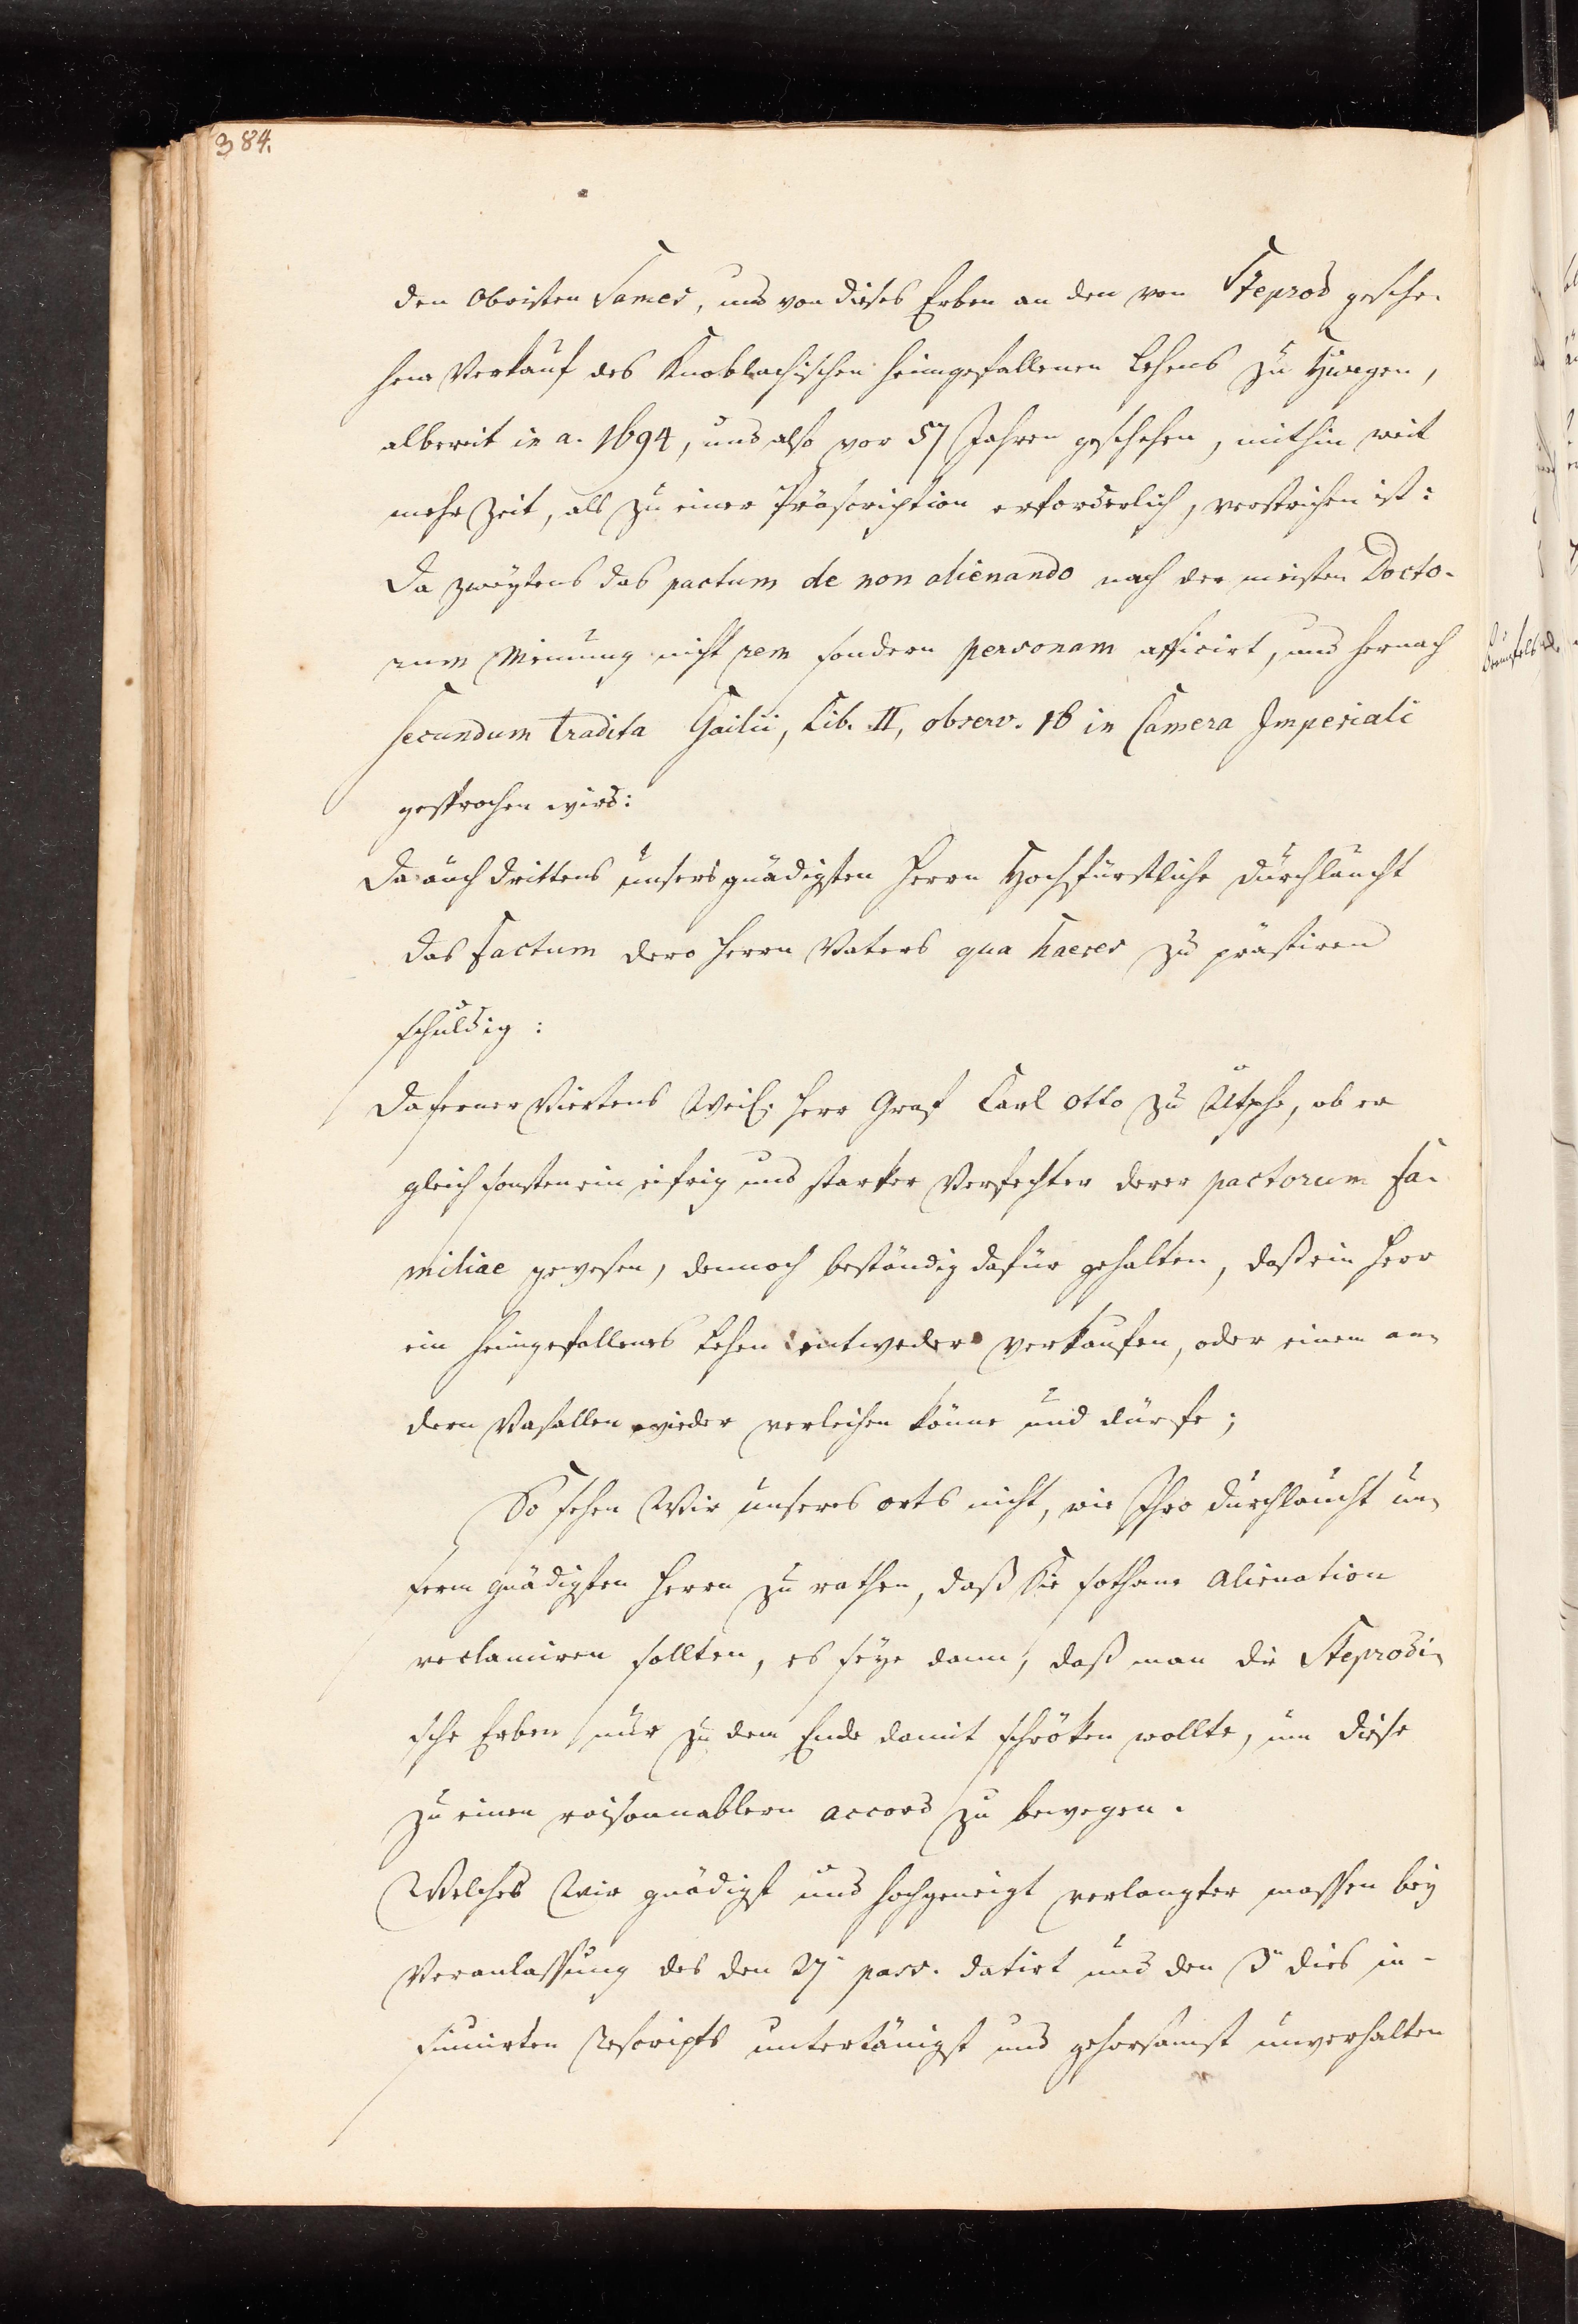 384.
den Obristen Sames, und von dieses Erben an den von Steprod gesche-
hene Verkauf des Knoblachischen heimgefallenen Lehens zu Hungen,
albereit in a. 1694, und also vor 57 Jahren geschehen, mithin weit
mehr Zeit, als zu einer Präscription erforderlich, verstrichen ist:
Da zweytens das pactum de non alienando nach der meisten Docto-
rum Meinung nicht rem sondern personam afficirt, und hernach
secundum tradita Gailii, Lib. II, observ. 16 in Camera Imperiali
gesprochen wird:
Da auch drittens unsers gnädigsten Herrn Hochfürstliche Durchlaucht
das factum dero Herrn Vaters qua haeres zu prästiren
schuldig:
Da ferner Viertens Weil. Herr Graf Carl Otto zu Utphe, ob er
gleich sonsten ein eifrig und starker Verfechter derer pactorum fa-
miliae gewesen, dennoch beständig dafür gehalten, daß ein Herr
ein heimgefallenes Lehen entweder verkaufen, oder einem an-
dern Vasallen wieder verleihen könne und dürfe;
So sehen Wir unseres orts nicht, wie Ihro Durchlaucht un-
serm gnädigsten Herrn zu rathen, daß Sie sothane Alienation
reclamiren sollten, es seye dann, daß man die Steprodi-
sche Erben nur zu dem Ende damit schröken wollte, um diese
zu einen raisonnablern accord zu bewegen.
Welches Wir gnädigst und hochgeneigt verlangter massen bey
Veranlassung des den 27 pass. datirt und den 3 dies in-
sinuirten Rescripts untertänigst und gehorsamst unverhalten